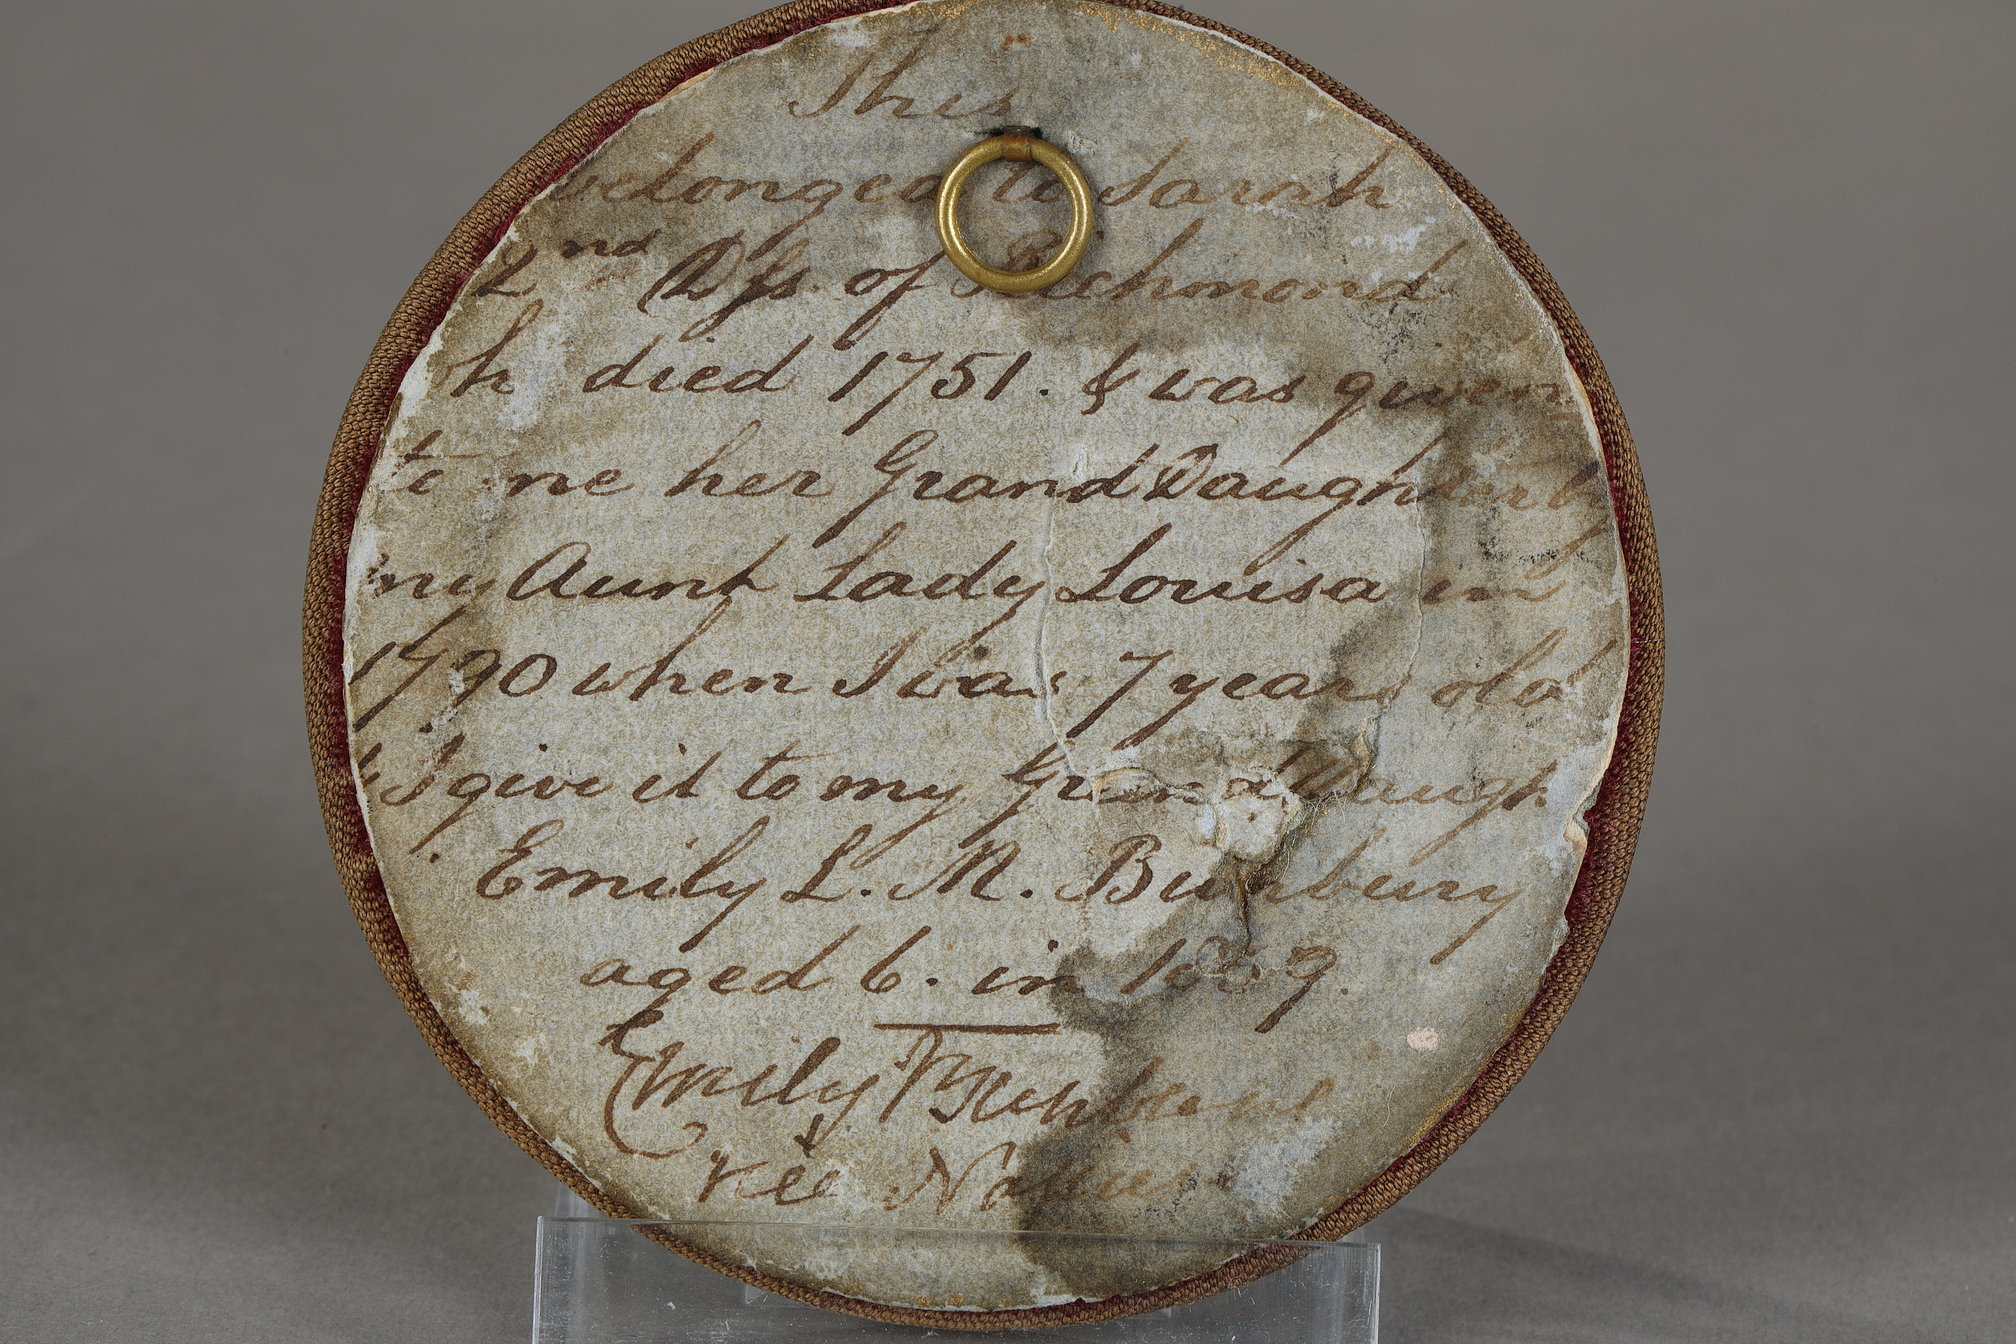 This
belonged to Sarah
2nd Dss. of Richmond
died 1751. & was given
to me her Grand Daughter by
my Aunt Lady Louisa in
1790 when I was 7 years old
& I give it to my Grand Daugh
Emily L. M. Bunbury
aged 6. in 1809.
Emily Bunbury
née Napier